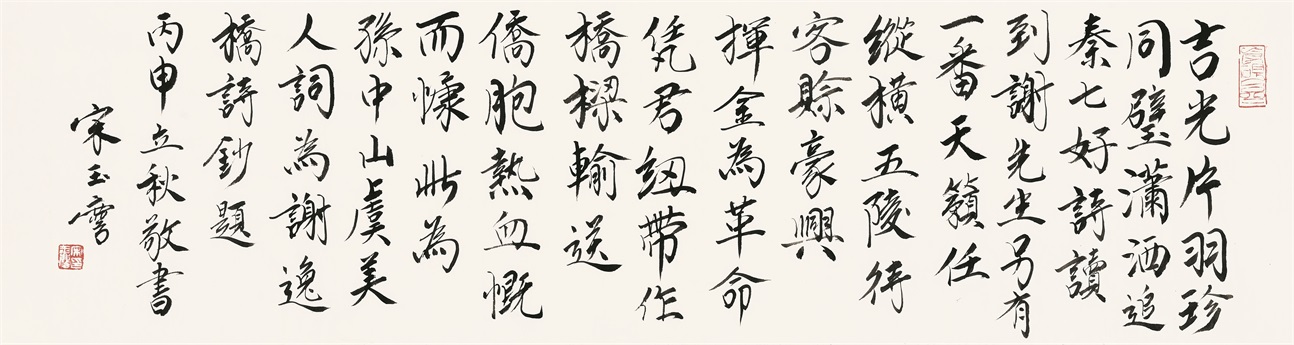 吉光片羽珍
同璧瀟洒追
秦七好詩讀
到謝先生另有
一番天籟任
縱橫五陵待
客賒豪興
揮金為革命
凭君紐帶作
橋樑輸送
僑胞熱血慨
而慷 此為
孫中山虞美
人詞為謝逸
橋詩鈔題
丙申立秋敬書
宋玉